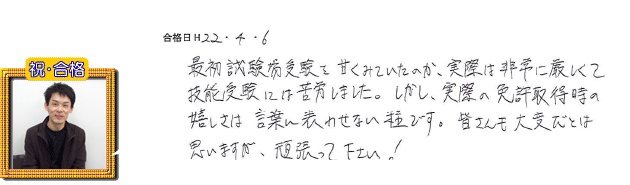 合格日 H22・4・6
祝・合格
最初試験場受験を甘くみていたのか、実際は非常に厳しくて
技能受験には苦労しました。しかし、実際の免許取得時の
嬉しさは言葉に表わせない程です。皆さんも大変だとは
思いますが、頑張って下さい！